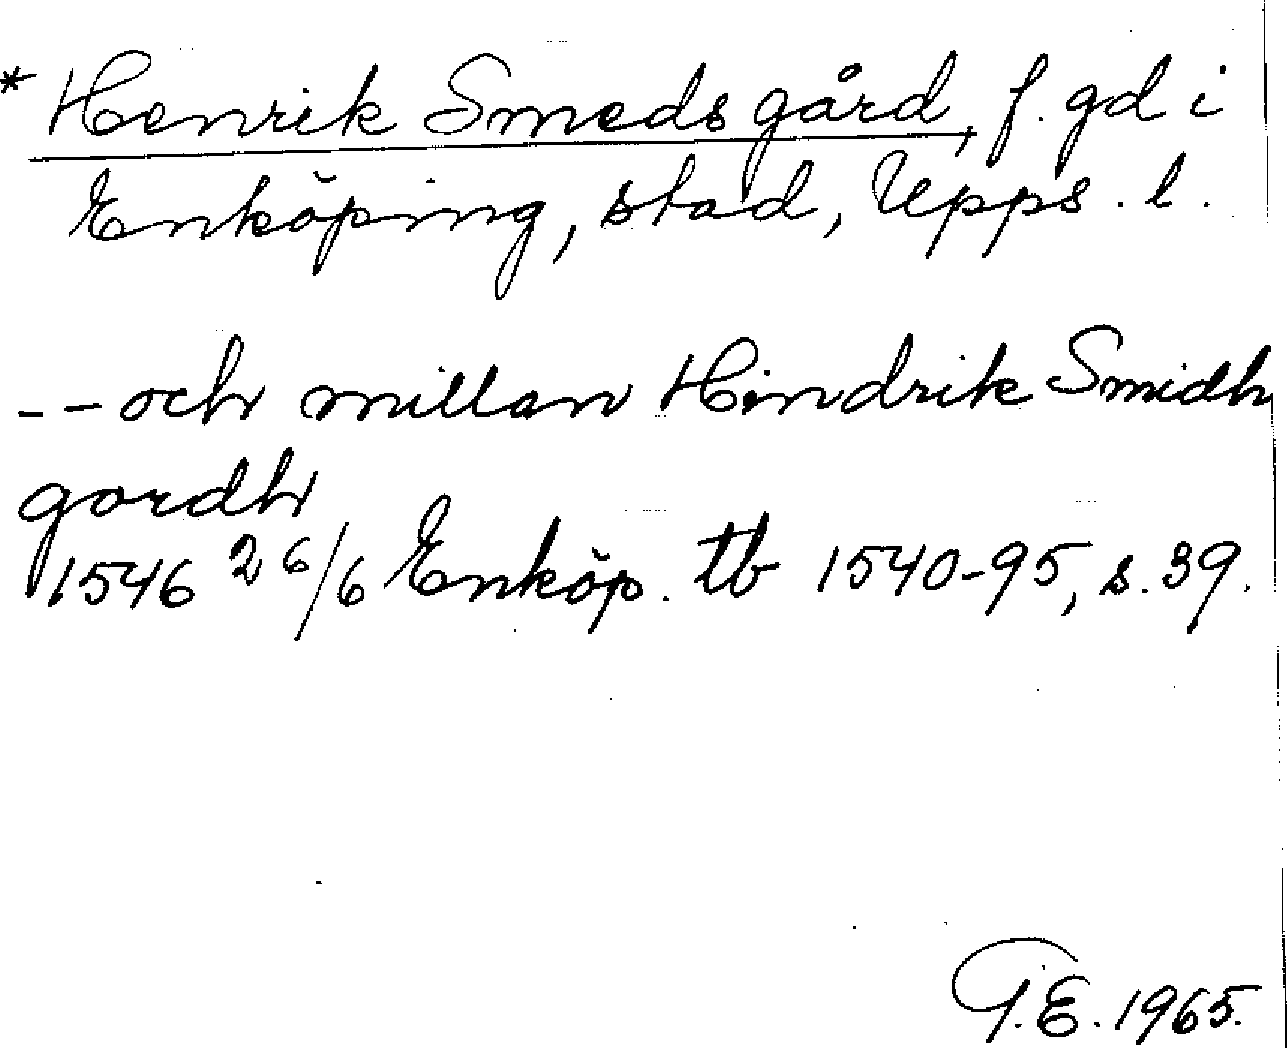 * Henrik Smedsgård, f. gd i
Enköping, stad, Upps. l.
-- och millan Hindrik Smidh
gordh
1546 26/6 Enköp. tb 1540-95, s. 39.
G.E. 1965.